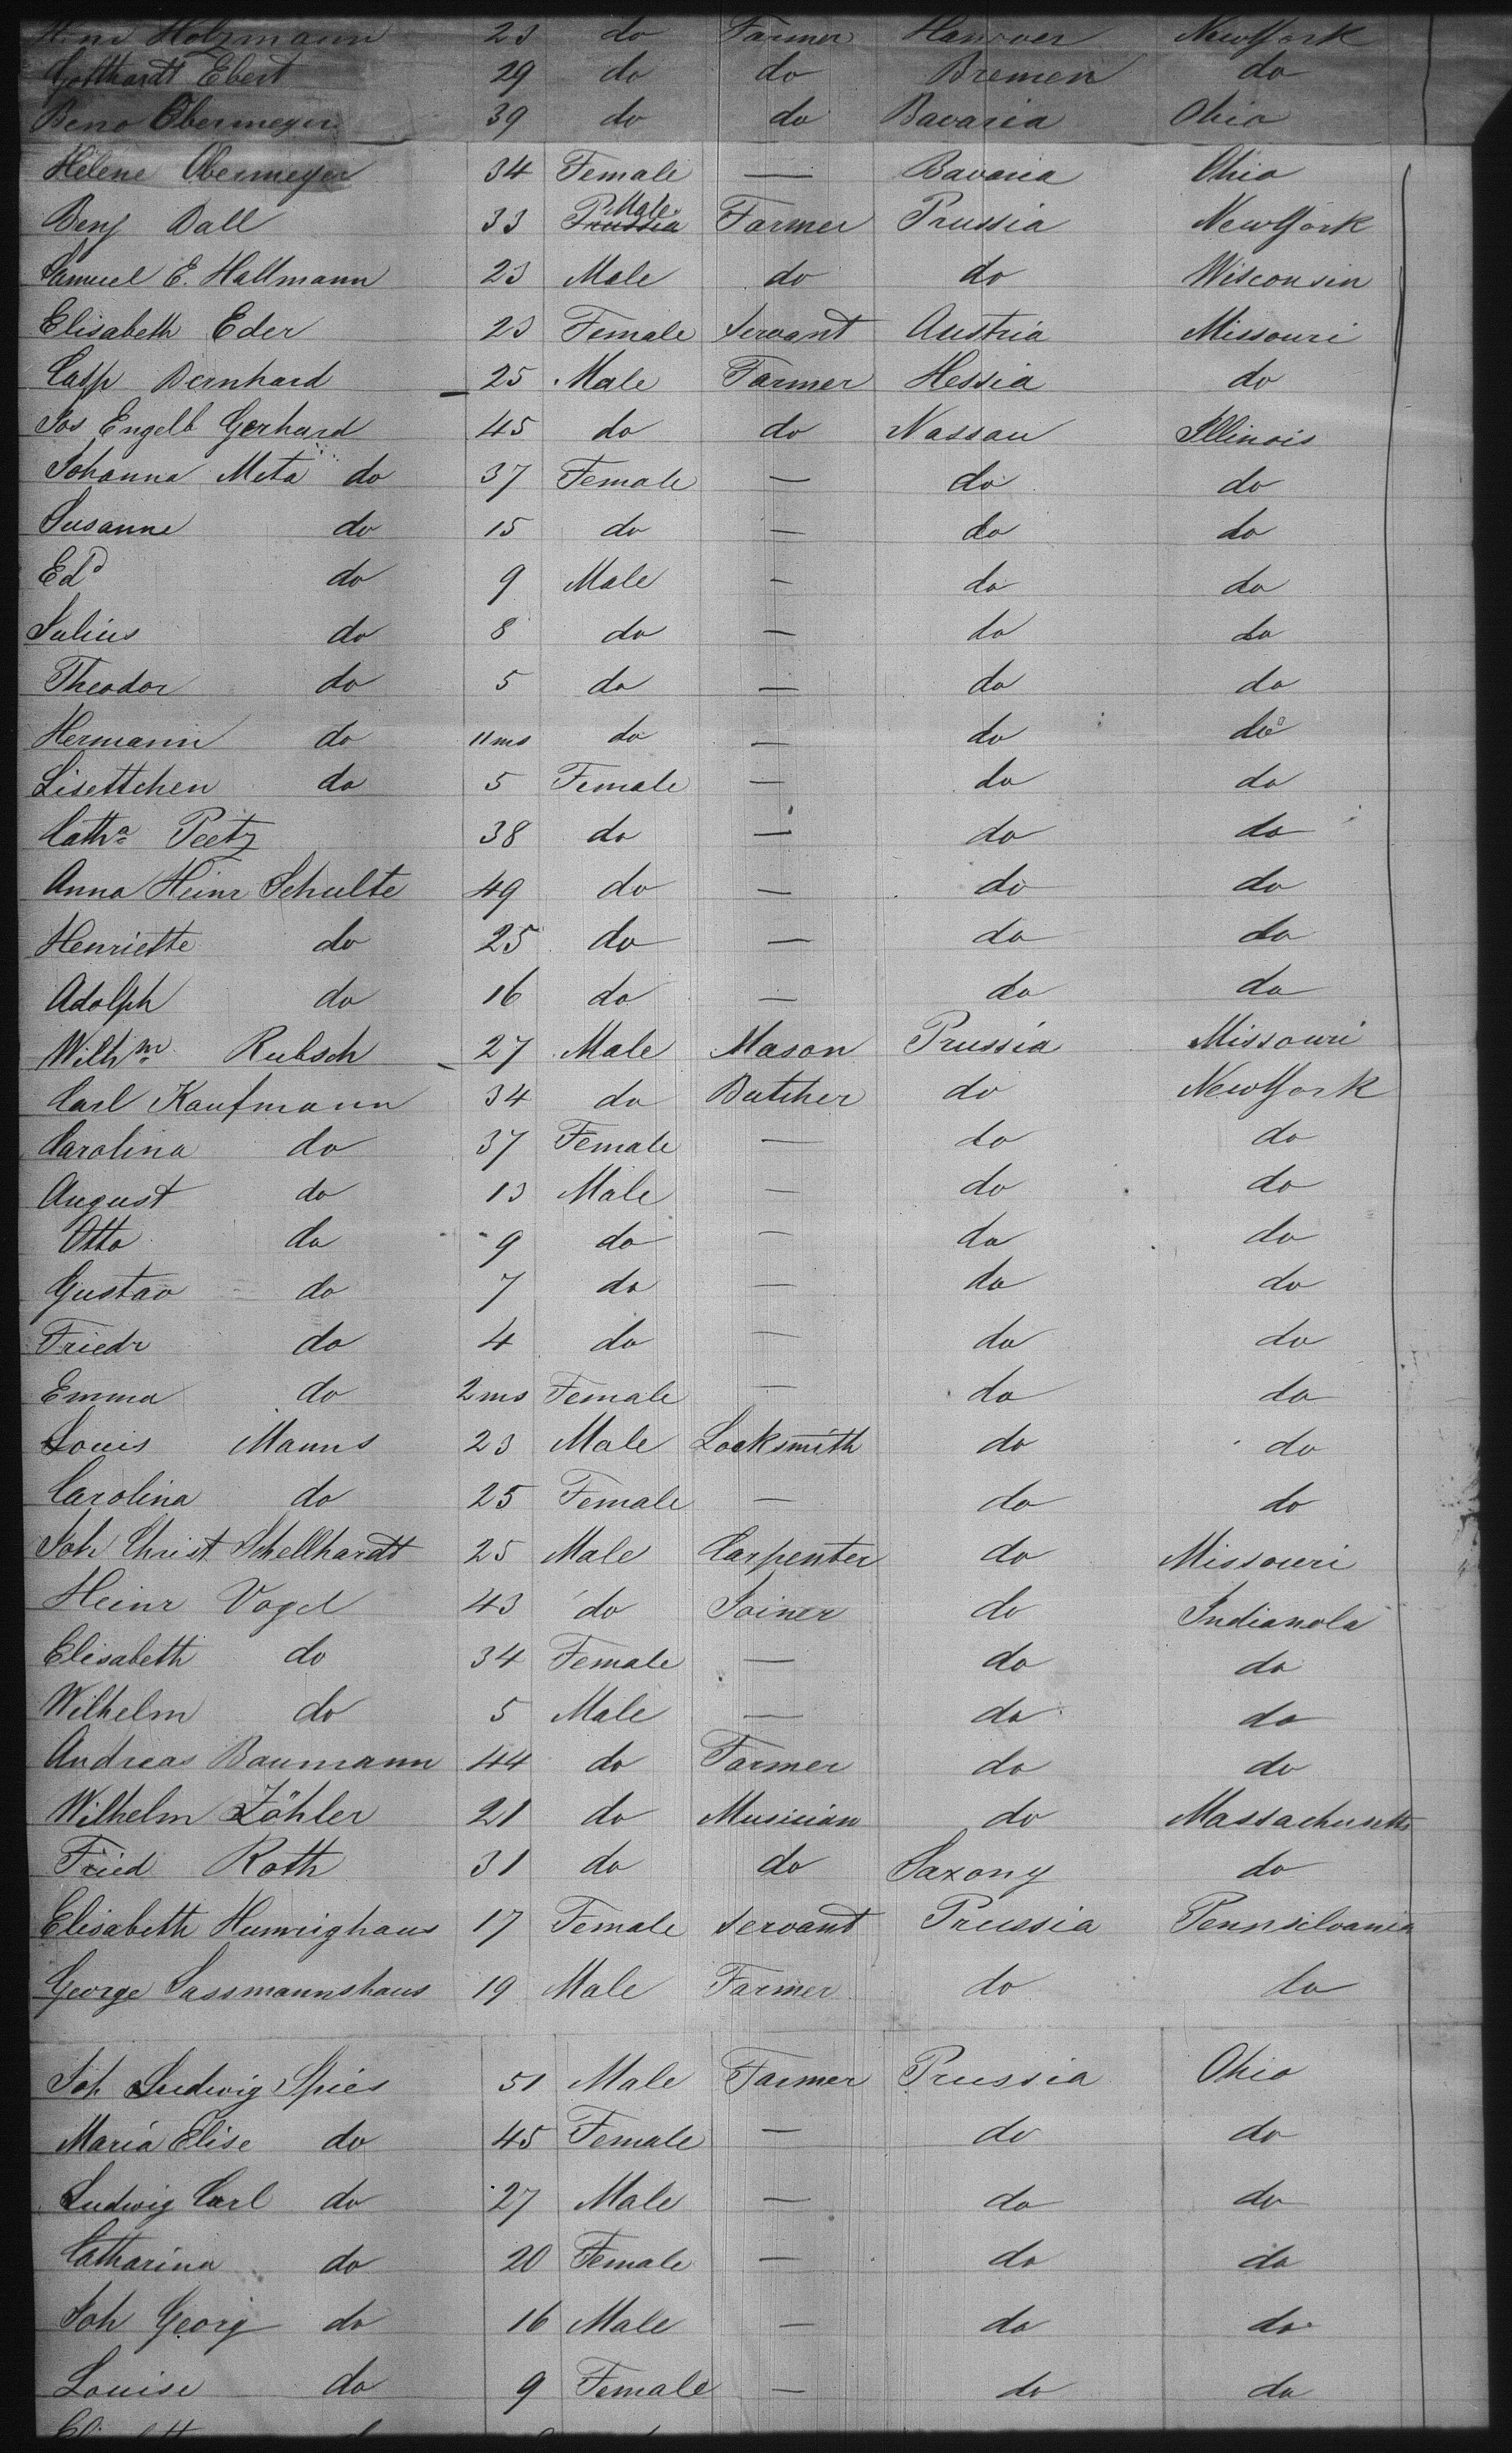 Holzmann 23 do Farmer Hanover New York
Gotthardt Ebert 29 do do Bremen do
Beno Obermeyer 39 do do Bavaria Ohio
Helene Obermeyer 34 Female — Bavaria Ohio
Benj Dall 33 Prussia Male Farmer Prussia New York
Samuel E. Hallmann 23 Male do do Wisconsin
Elisabeth Eder 23 Female Servant Austria Missouri
Casp Bernhard 25 Male Farmer Hessia do
Jos Engelb Gerhard 45 do do Nassau Illinois
Johanna Meta do 37 Female — do do
Susanne do 15 do — do do
Ed^d do 9 Male — do do
Julius do 8 do — do do
Theodor do 5 do — do do
Hermann do 11ms do — do do
Lisettchen do 5 Female — do do
Cath^a Peetz 38 do — do do
Anna Heinr Schulte 49 do — do do
Henriette do 25 do — do do
Adolph do 16 do — do do
Wilh^m Rubsch 27 Male Mason Prussia Missouri
Carl Kaufmann 34 do Butcher do New York
Carolina do 37 Female — do do
August do 13 Male — do do
Otto do 9 do — do do
Gustav do 7 do — do do
Friedr do 4 do — do do
Emma do 2ms Female — do do
Louis Manns 23 Male Locksmith do do
Carolina do 25 Female — do do
Joh Christ Schellhardt 25 Male Carpenter do Missouri
Heinr Vogel 43 do Joiner do Indianola
Elisabeth do 34 Female — do do
Wilhelm do 5 Male — do do
Andreas Baumann 44 do Farmer do do
Wilhelm Zöhler 21 do Musician do Massachusetts
Fried Roth 31 do do Saxony do
Elisabeth Humrighaus 17 Female Servant Prussia Pennsilvania
George Sassmannshaus 19 Male Farmer do do
Joh Ludwig Spies 51 Male Farmer Prussia Ohio
Maria Elise do 45 Female — do do
Ludwig Carl do 27 Male — do do
Catharina do 20 Female — do do
Joh Georg do 16 Male — do do
Louise do 9 Female — do do